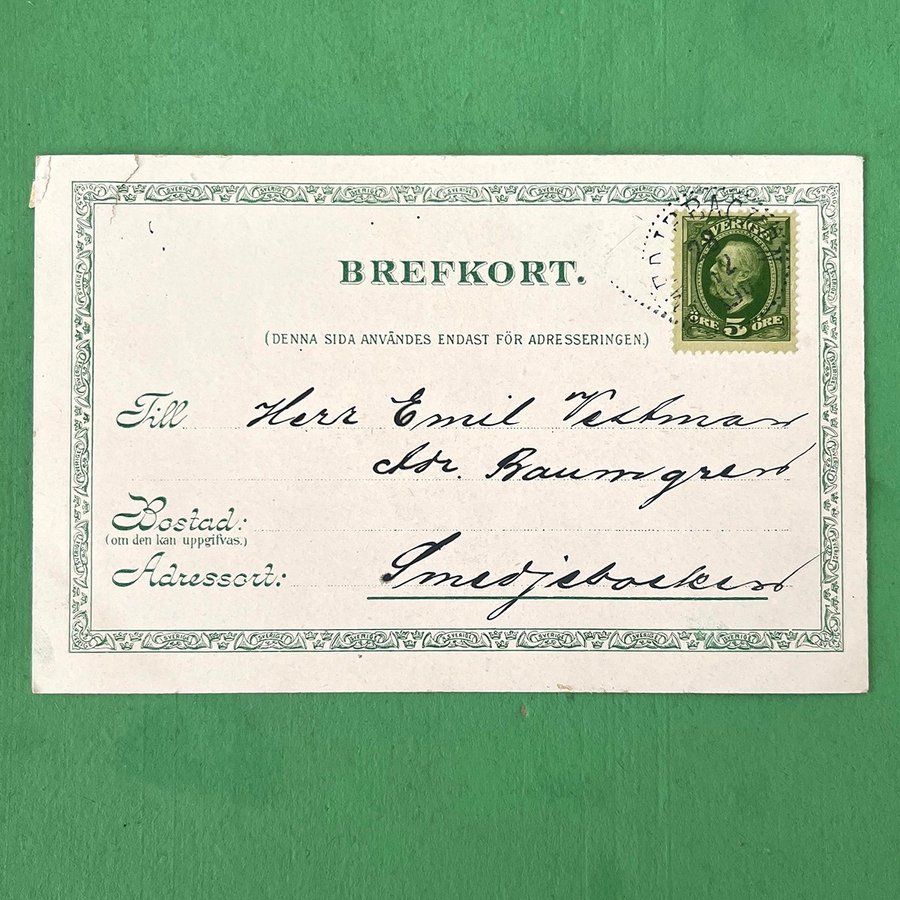 BREFKORT.
SVERIGE
ÖRE 5 ÖRE
(DENNA SIDA ANVÄNDES ENDAST FÖR ADRESSERINGEN.)
Till Herr Emil Vestman
Adr. Baumgren
Bostad:
(om den kan uppgifvas.)
Adressort: Smedjebacken